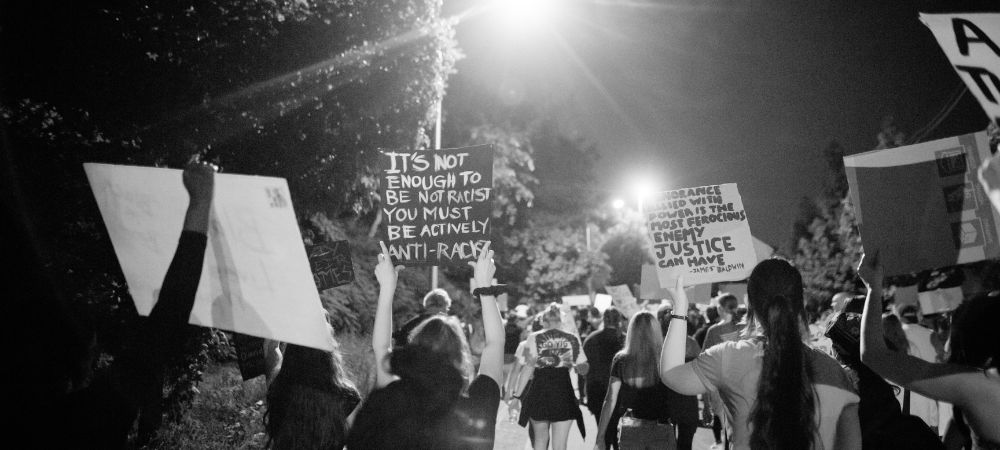 IT'S NOT
ENOUGH TO
BE NOT RACIST
YOU MUST
BE ACTIVELY
ANTI-RACIST
IGNORANCE
ALLIED WITH
POWER IS THE
MOST FEROCIOUS
ENEMY
JUSTICE
CAN HAVE
-JAMES BALDWIN
A